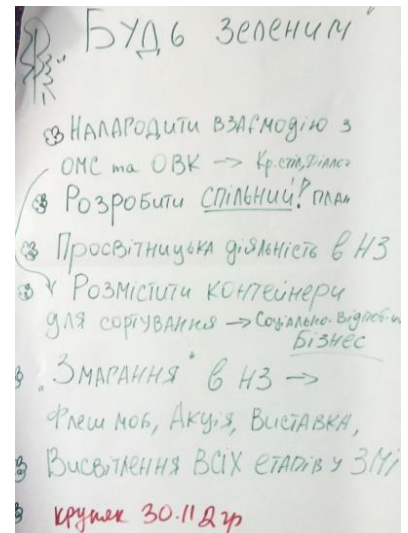 „Будь зеленим"
Налагодити взаємодію з
ОМС та ОВК → Кр. стіл, Діалог
Розробити спільний! план
Просвітницька діяльність в НЗ
Розмістити контейнери
для сортування → Соціально-відпов-й
Бізнес
„Змагання" в НЗ →
Флеш моб, Акція, Виставка,
Висвітлення ВСІХ етапів у ЗМІ
30.11 2 гр